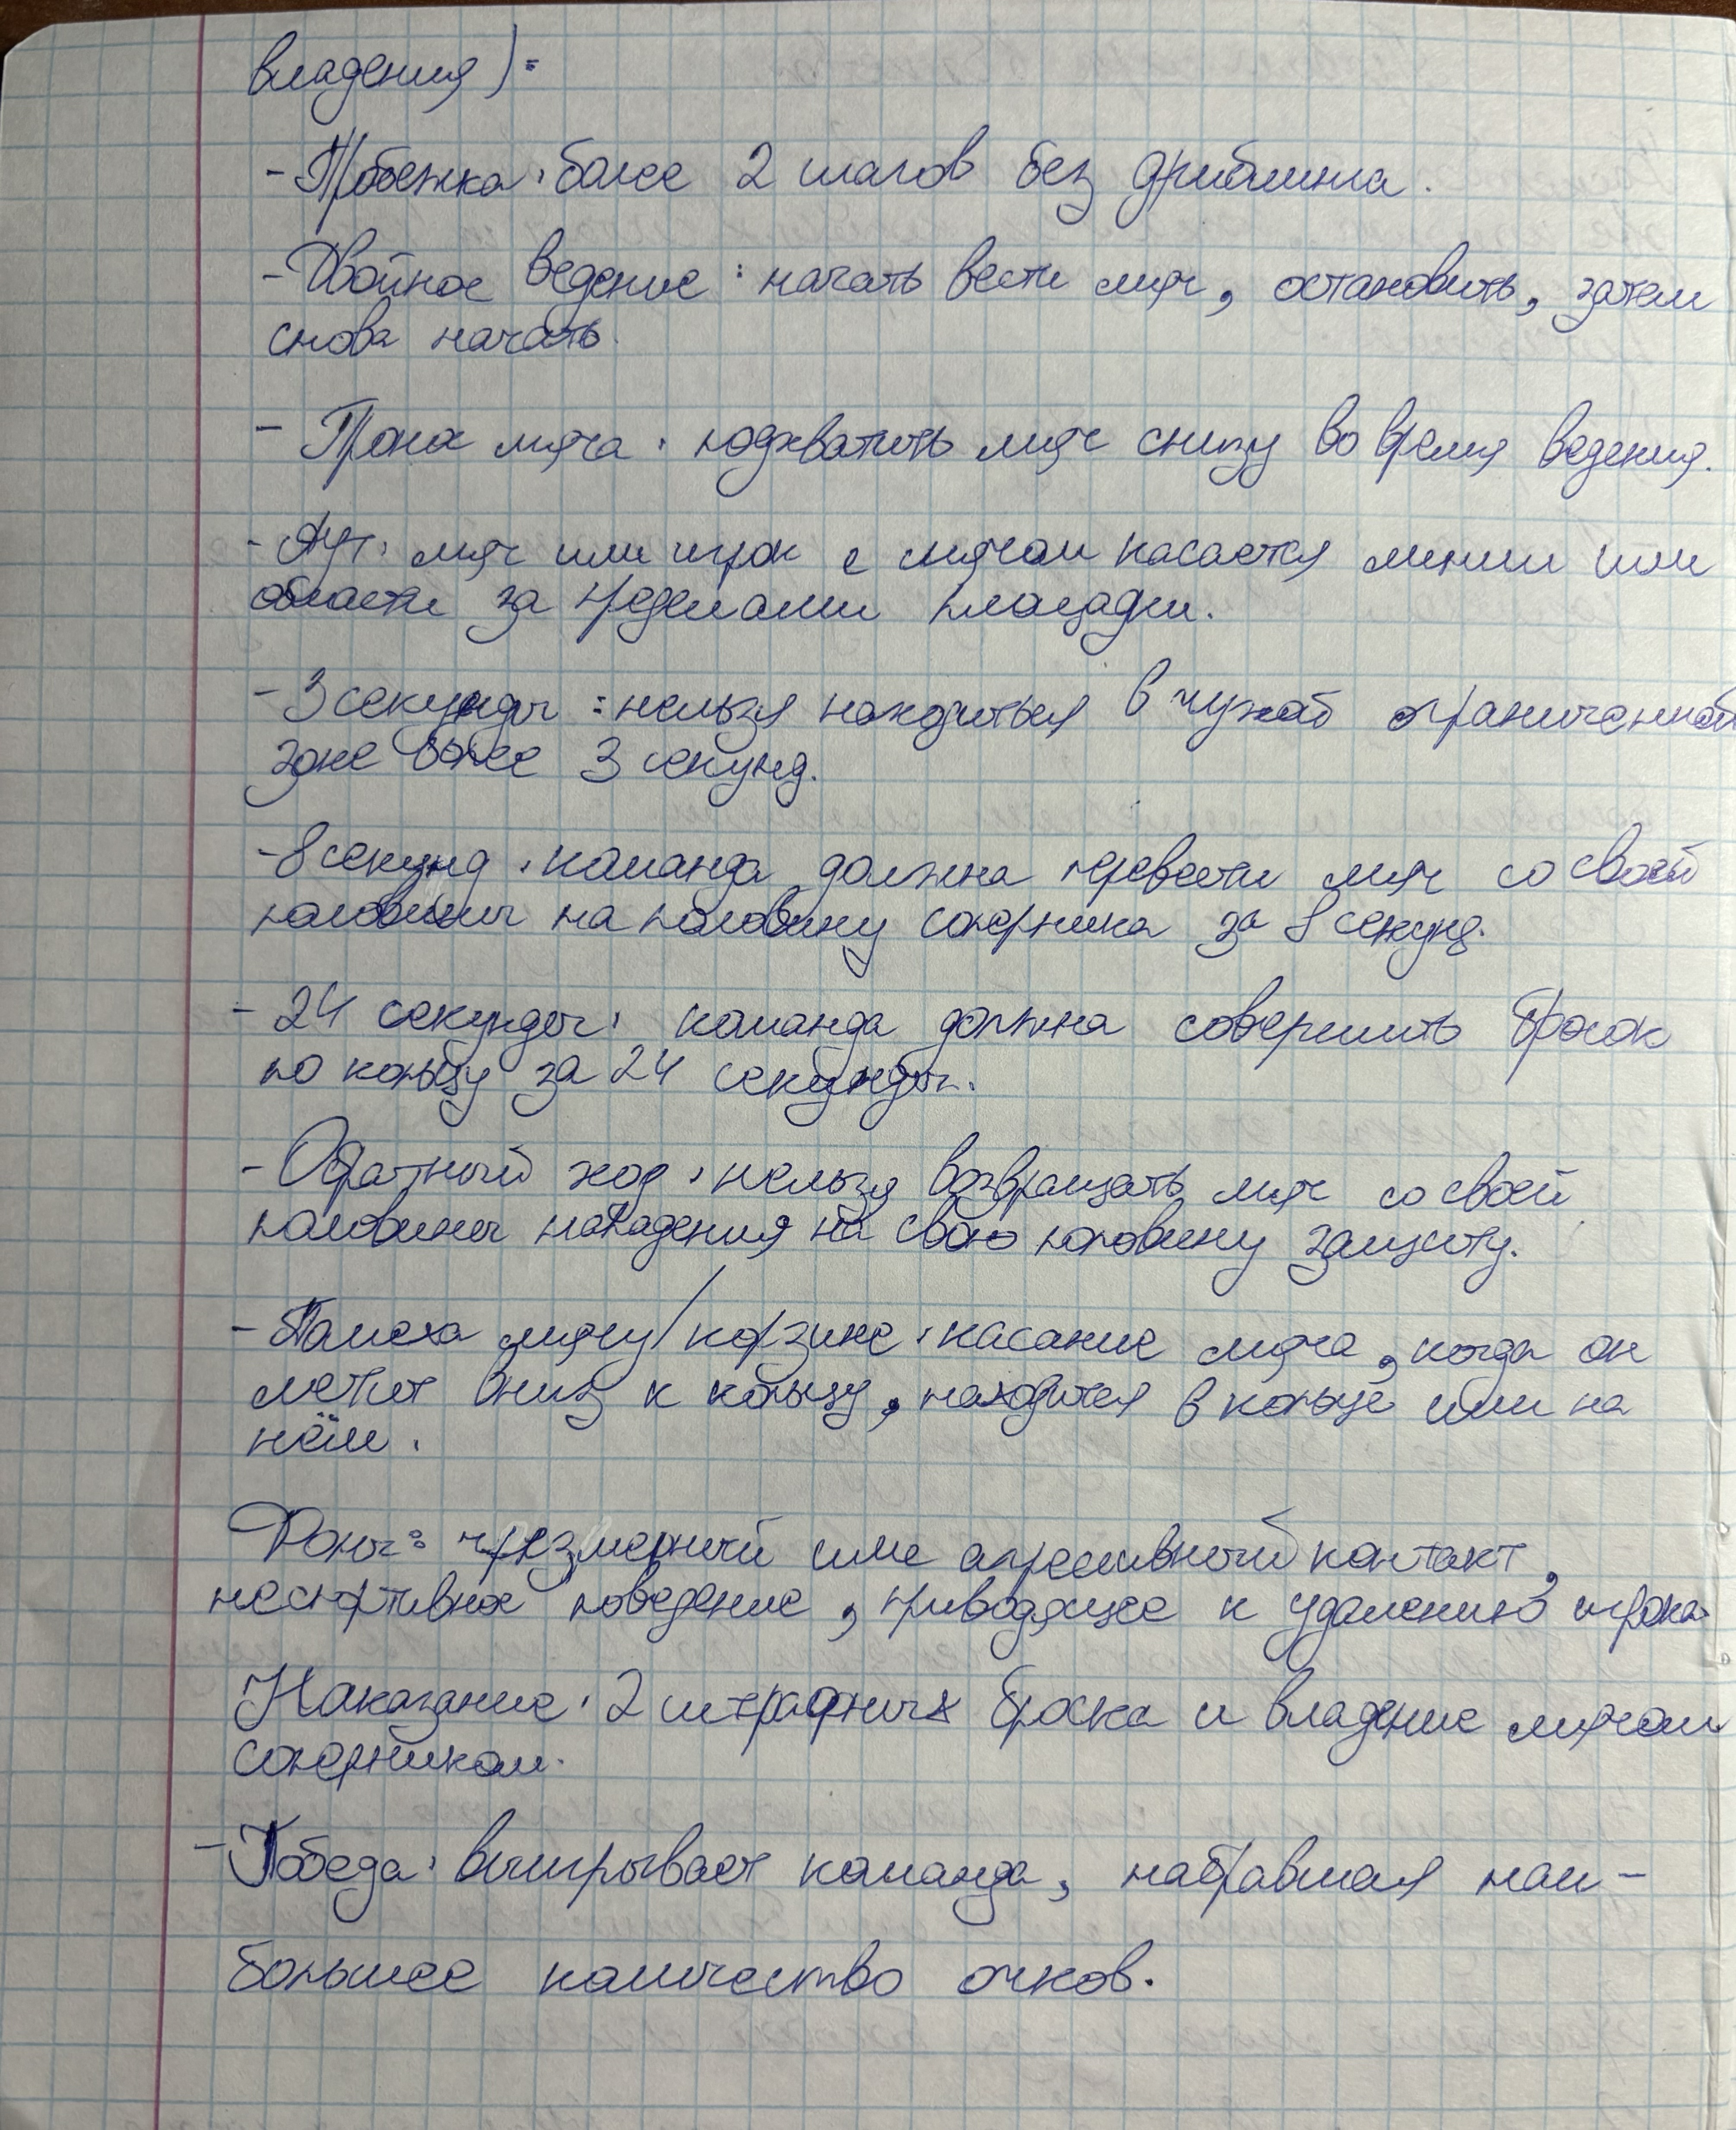 владения):
- Пробежка: более 2 шагов без дриблинга.
- Двойное ведение: начать вести мяч, остановить, затем
снова начать.
- Пронос мяча: подхватить мяч снизу во время ведения.
- Аут: мяч или игрок с мячом касается линии или
области за пределами площадки.
- 3 секунды: нельзя находиться в чужой ограниченной
зоне более 3 секунд.
- 8 секунд: команда должна перевести мяч со своей
половины на половину соперника за 8 секунд.
- 24 секунды: команда должна совершить бросок
по кольцу за 24 секунды.
- Обратный ход: нельзя возвращать мяч со своей
половины нападения на свою половину защиту.
- Помеха мячу/корзине: касание мяча, когда он
летит вниз к кольцу, находится в кольце или на
нём.
Фолы: чрезмерный или агрессивный контакт,
неспортивное поведение, приводящее к удалению игрока.
Наказание: 2 штрафных броска и владение мячом
соперником.
- Победа: выигрывает команда, набравшая наи-
большее количество очков.